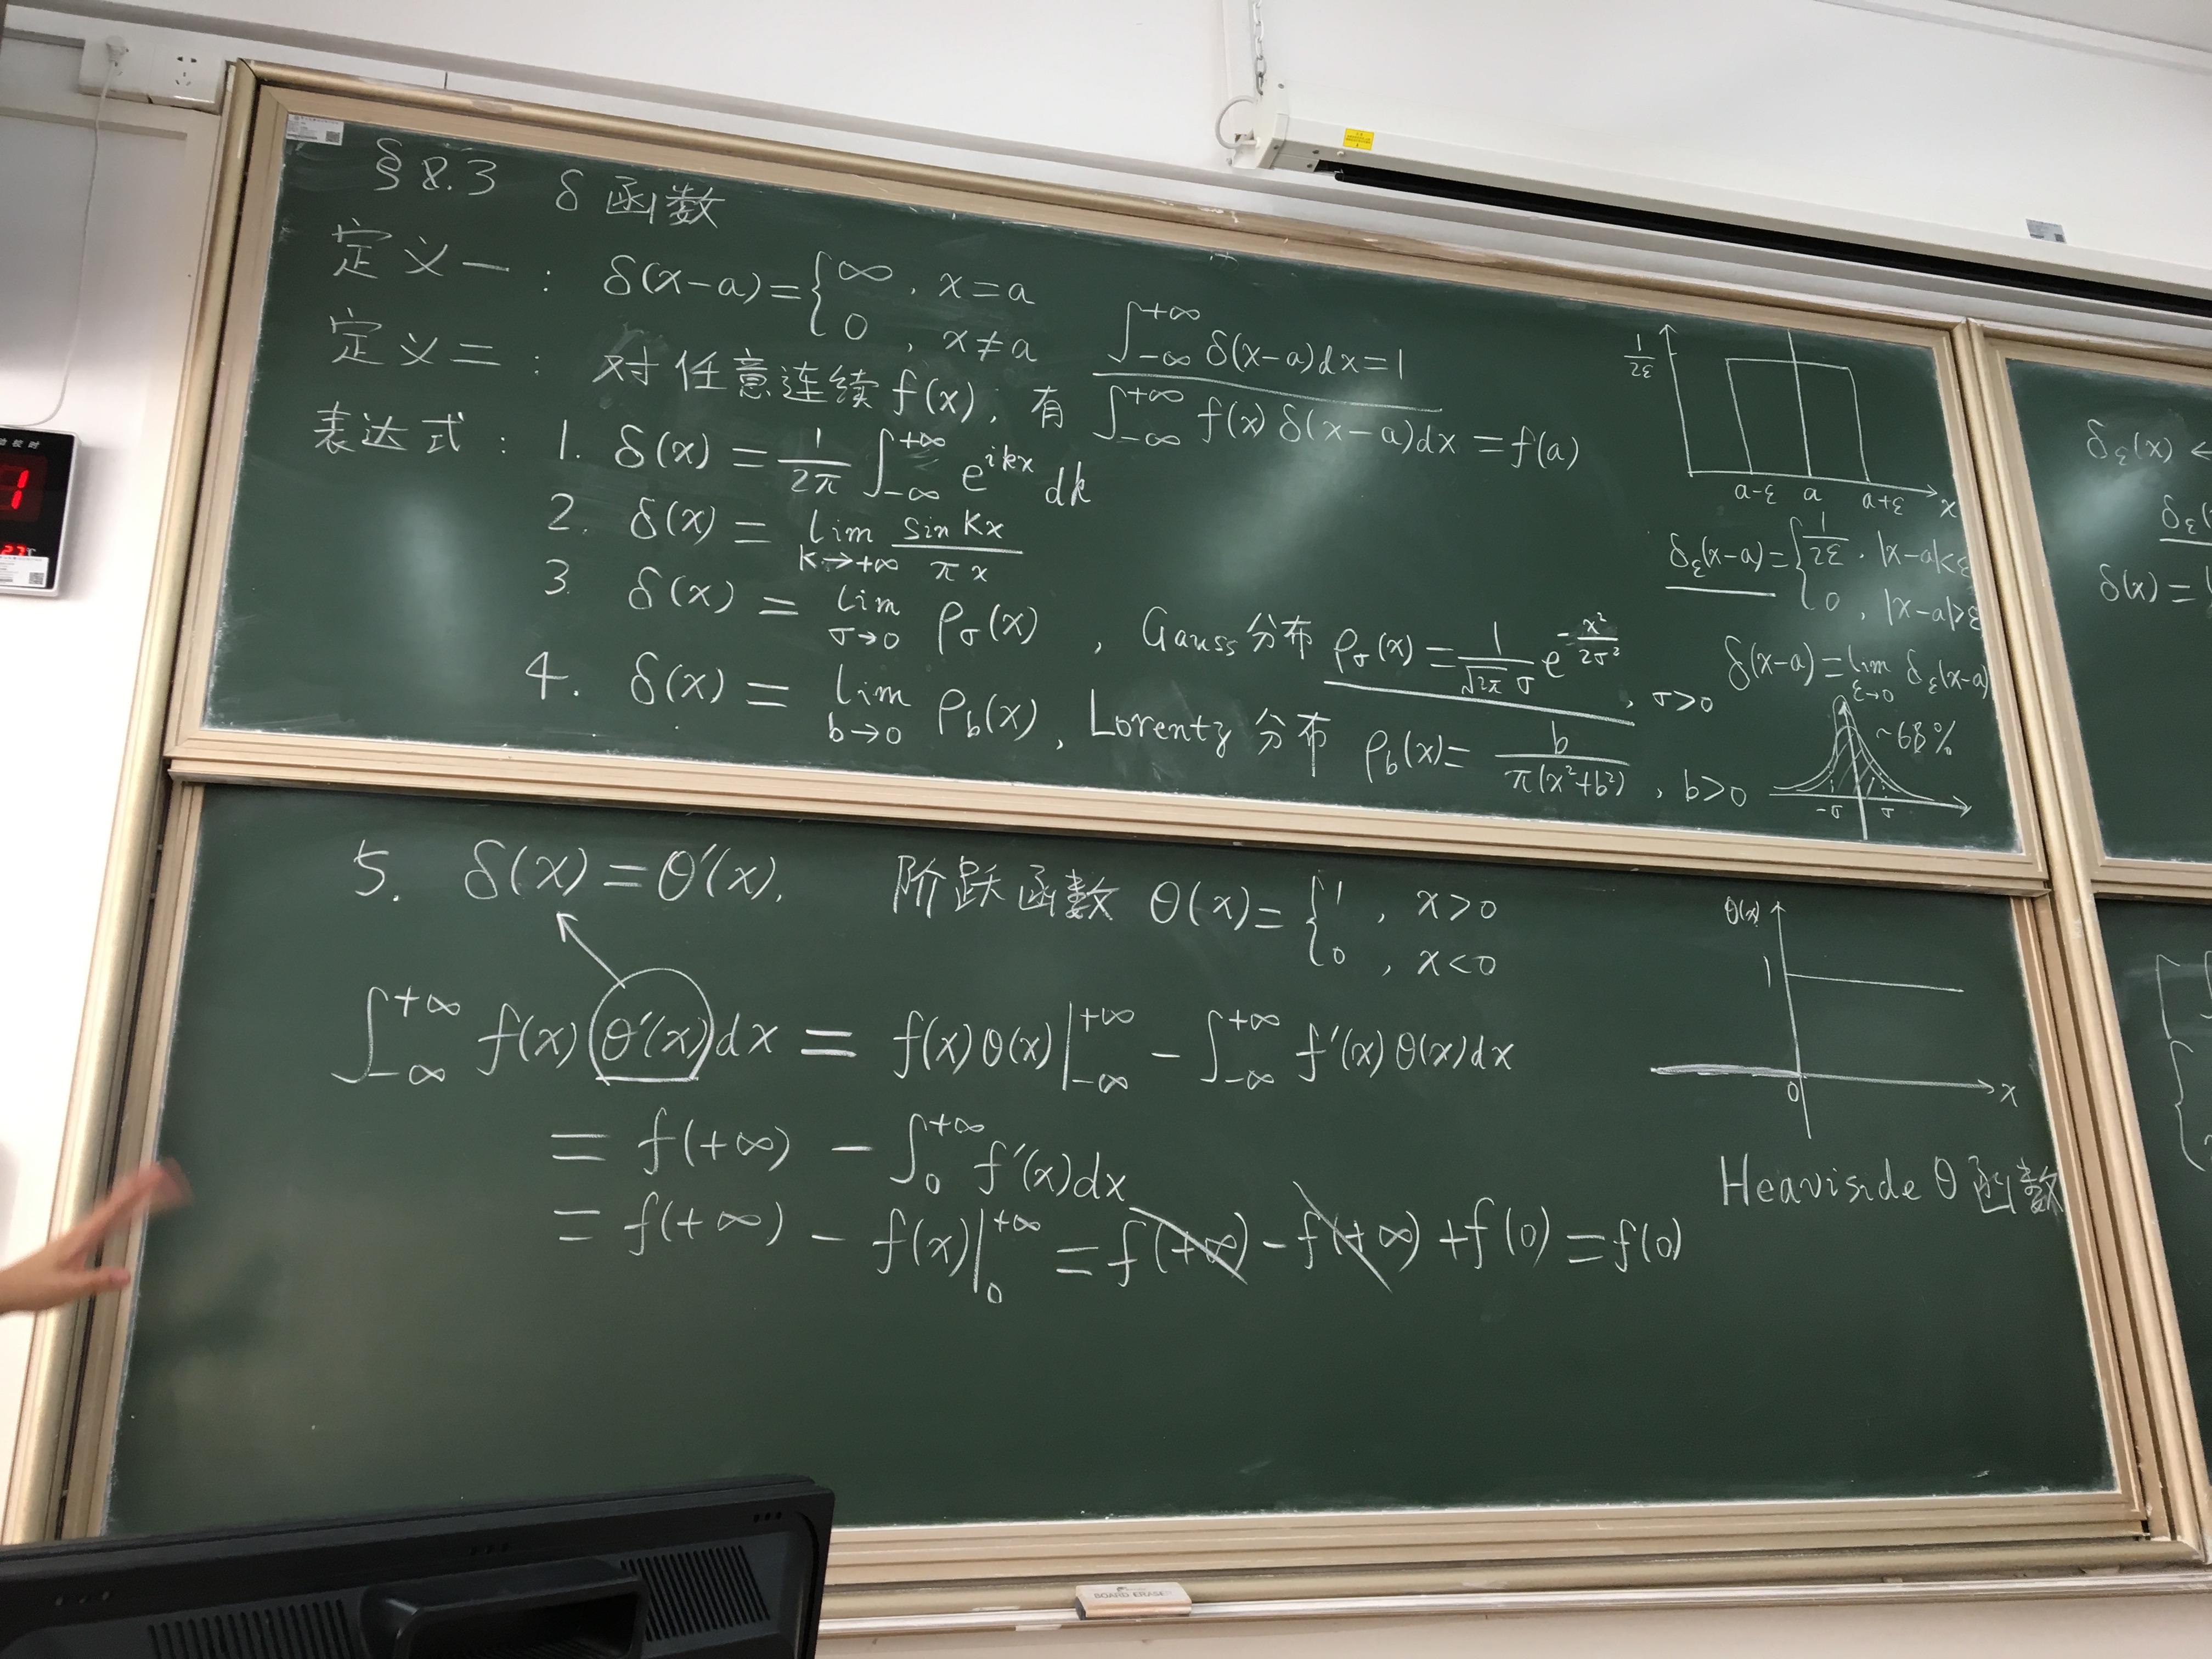 §8.3 δ函数
定义一: δ(x-a)={∞, x=a
0, x≠a
∫_{-∞}^{+∞} δ(x-a)dx=1
定义二: 对任意连续f(x), 有 ∫_{-∞}^{+∞} f(x)δ(x-a)dx=f(a)
表达式: 1. δ(x)=\frac{1}{2π}∫_{-∞}^{+∞} e^{ikx}dk
2. δ(x)=lim_{K→+∞} \frac{sin Kx}{πx}
3. δ(x)=lim_{σ→0} ρ_σ(x), Gauss分布 ρ_σ(x)=\frac{1}{\sqrt{2π}σ}e^{-\frac{x²}{2σ²}}, σ>0
4. δ(x)=lim_{b→0} ρ_b(x), Lorentz分布 ρ_b(x)=\frac{b}{π(x²+b²)}, b>0
\frac{1}{2ε}
a-ε a a+ε x
δ_ε(x-a)={\frac{1}{2ε}, |x-a|<ε
0, |x-a|>ε
δ(x-a)=lim_{ε→0} δ_ε(x-a)
~68%
-σ σ
5. δ(x)=θ′(x). 阶跃函数 θ(x)={1, x>0
0, x<0
∫_{-∞}^{+∞} f(x)θ′(x)dx = f(x)θ(x)|_{-∞}^{+∞} - ∫_{-∞}^{+∞} f′(x)θ(x)dx
= f(+∞) - ∫_0^{+∞} f′(x)dx
= f(+∞) - f(x)|_0^{+∞} = f(+∞) - f(+∞) + f(0) = f(0)
θ(x)
1
0 x
Heaviside θ函数
δ_ε(x)
δ(x)=
BOARD ERASE